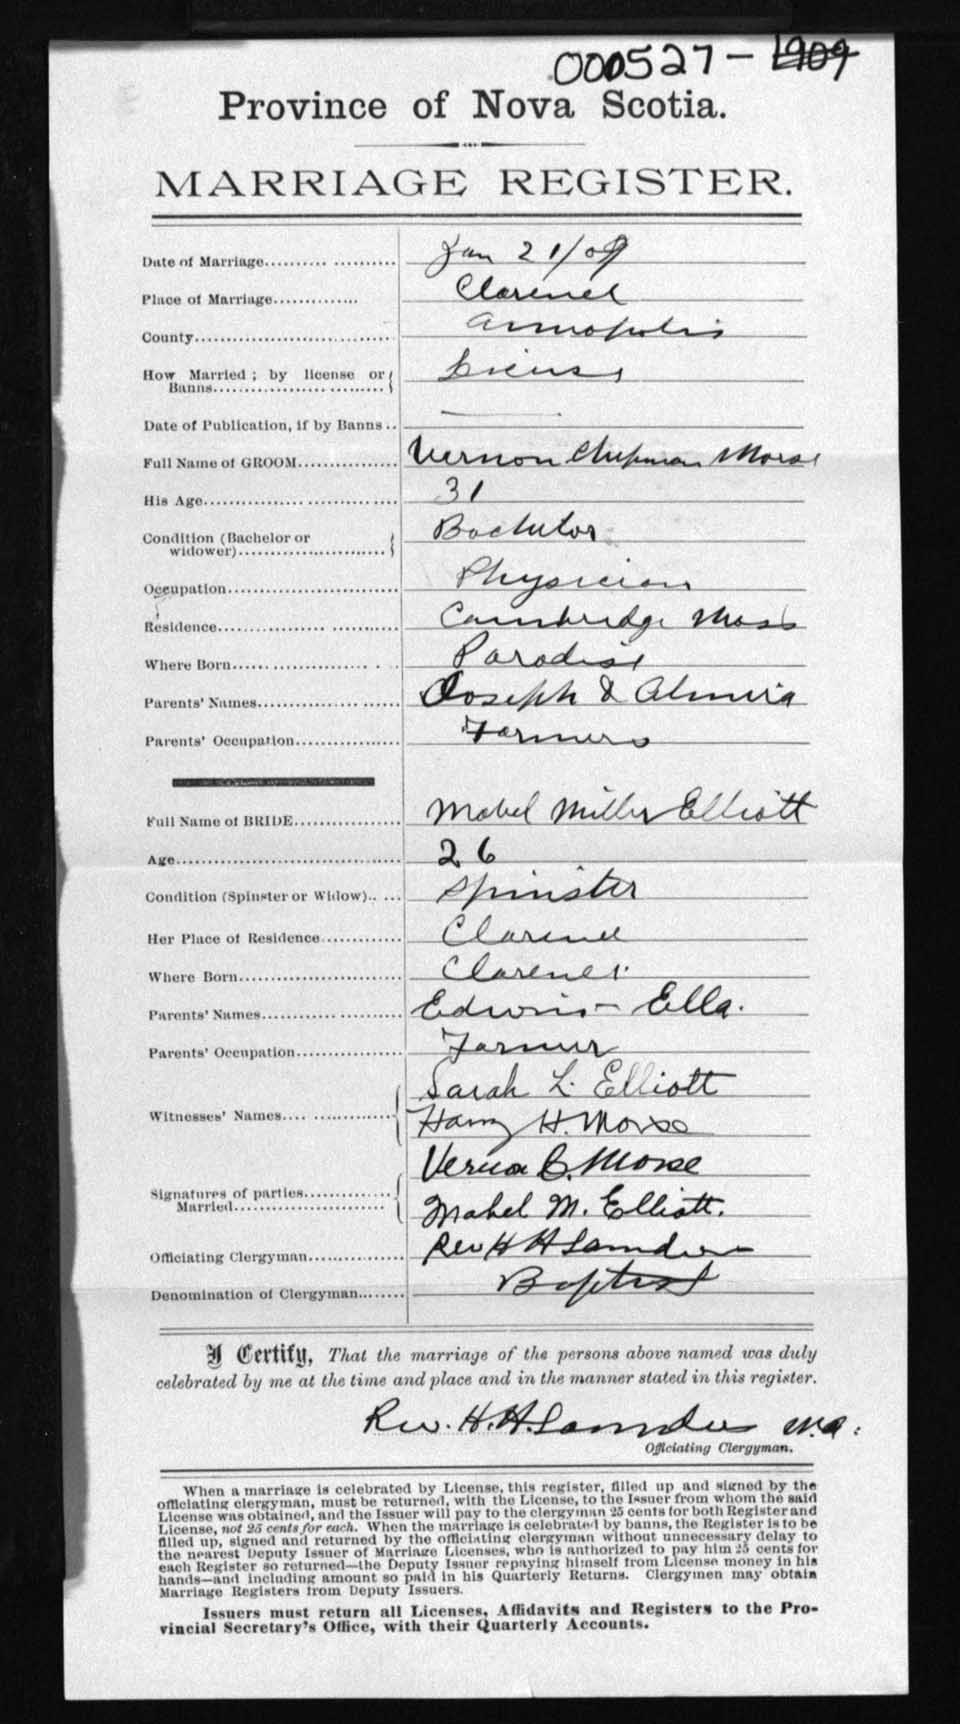 000527 - 1909
Province of Nova Scotia.
MARRIAGE REGISTER.
Date of Marriage.................... Jan 21/09
Place of Marriage.............. Clarence
County................................ Annapolis
How Married ; by license or
Banns........................... License
Date of Publication, if by Banns ..
Full Name of GROOM................ Vernon Chipman Morse
His Age............................... 31
Condition (Bachelor or
widower)........................ Bachelor
Occupation............................ Physician
Residence............................ Cambridge Mass
Where Born........................ Paradise
Parents' Names...................... Joseph & Almira
Parents' Occupation................. Farmers
Full Name of BRIDE................. Mabel Miller Elliott
Age.................................... 26
Condition (Spinster or Widow)..... Spinster
Her Place of Residence............. Clarence
Where Born......................... Clarence
Parents' Names...................... Edwin - Ella.
Parents' Occupation................. Farmer
Sarah L. Elliott
Witnesses' Names.................. Harry H. Morse
Vernon C. Morse
Signatures of parties..............
Married......................... Mabel M. Elliott.
Officiating Clergyman............... Rev H H Saunders
Denomination of Clergyman........ Baptist
I Certify, That the marriage of the persons above named was duly
celebrated by me at the time and place and in the manner stated in this register.
Rev. H. H. Saunders M.A.
Officiating Clergyman.
When a marriage is celebrated by License, this register, filled up and signed by the
officiating clergyman, must be returned, with the License, to the Issuer from whom the said
License was obtained, and the Issuer will pay to the clergyman 25 cents for both Register and
License, not 25 cents for each. When the marriage is celebrated by banns, the Register is to be
filled up, signed and returned by the officiating clergyman without unnecessary delay to
the nearest Deputy Issuer of Marriage Licenses, who is authorized to pay him 25 cents for
each Register so returned—the Deputy Issuer repaying himself from License money in his
hands—and including amount so paid in his Quarterly Returns. Clergymen may obtain
Marriage Registers from Deputy Issuers.
Issuers must return all Licenses, Affidavits and Registers to the Pro-
vincial Secretary's Office, with their Quarterly Accounts.